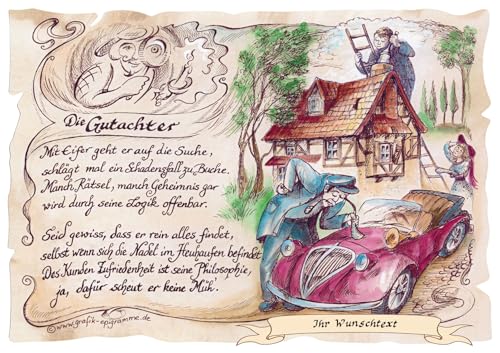 Die Gutachter
Mit Eifer geht er auf die Suche,
schlägt mal ein Schadensfall zu Buche.
Manch Rätsel, manch Geheimnis gar
wird durch seine Logik offenbar.
Seid gewiss, dass er rein alles findet,
selbst wenn sich die Nadel im Heuhaufen befindet.
Des Kunden Zufriedenheit ist seine Philosophie,
ja, dafür scheut er keine Müh'.
©www.grafik-epigramme.de
Ihr Wunschtext